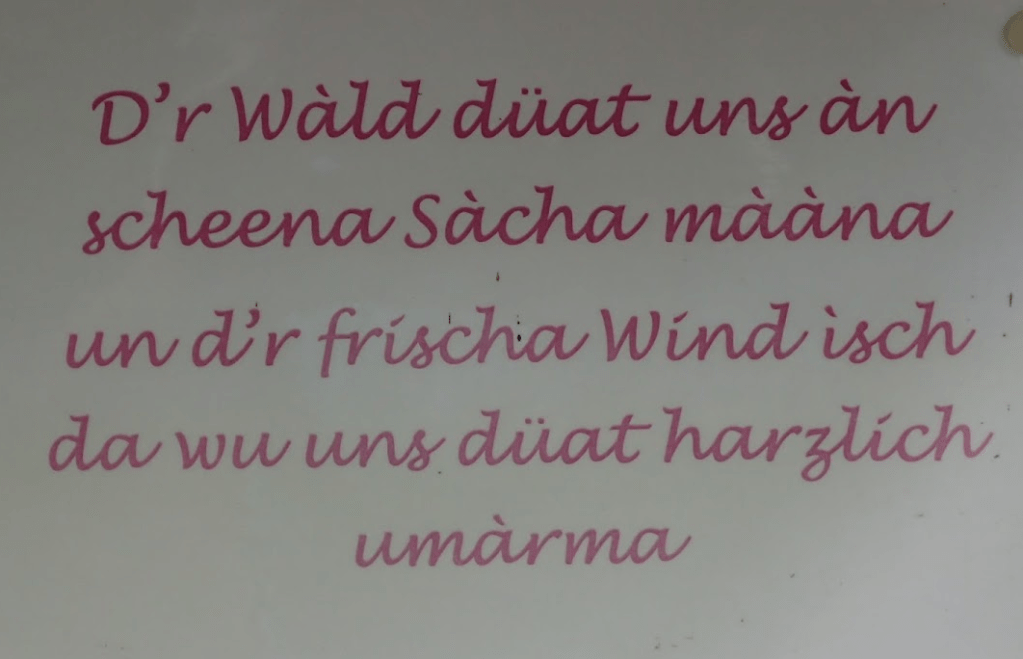 D'r Wàld düat uns àn
scheena Sàcha mààna
un d'r frischa Wind isch
da wu uns düat harzlich
umàrma